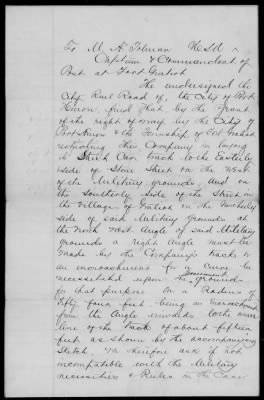 To M. A. Tolman U.S.A.
Captain & Commandant of
Post at Fort Gratiot
The undersigned the
City Rail Road of, the City of Port
Huron, find that by the grant
of the right of way by the City of
Port Huron & the Township of Fort Gratiot
restricting this Company in laying
its Street Car track to the Easterly
side of Stone Street on the West
of the Military grounds, and on
the Southerly side of the Street in
the Village of Gratiot on the Northerly
side of said Military grounds at
the North West Angle of said Military
grounds a right Angle must be
made by the Company's track or
an encroachment for a curve be
necessitated upon the Government grounds
for that purpose on a Radius of
Fifty four feet being an encroachment
from the Angle inwards to the inner
line of the track of about fifteen
feet as shown by the accompanying
Sketch. We therefore ask if not
incompatible with the Military
necessities & Rules in the Case